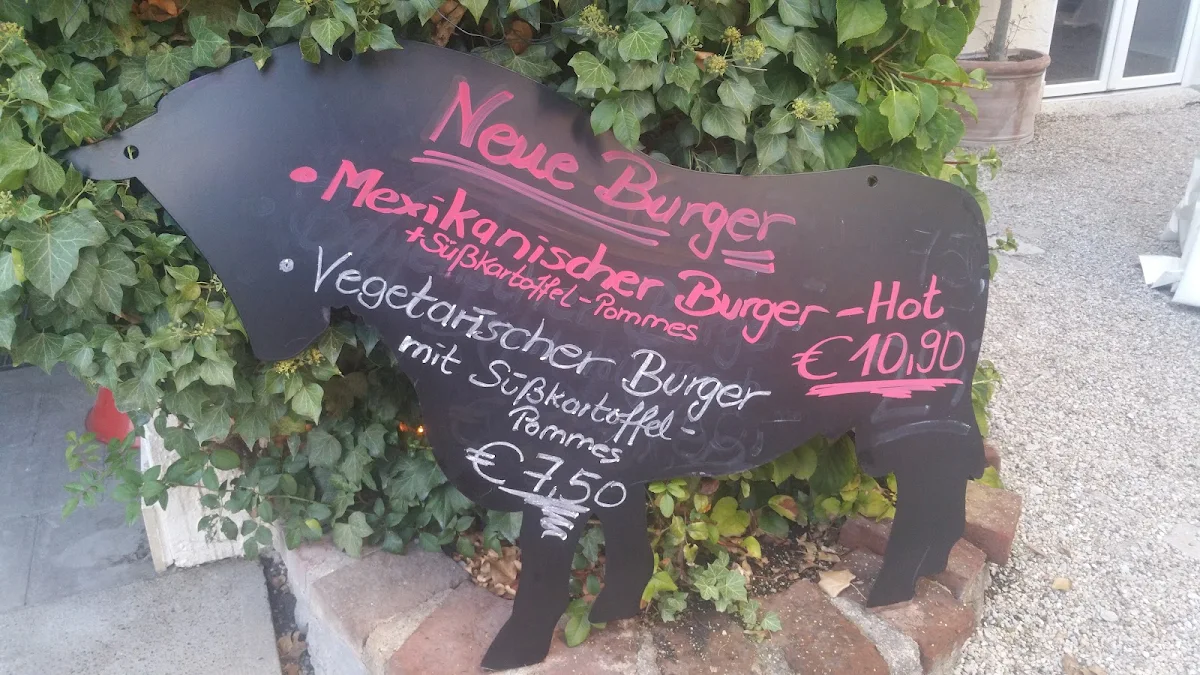 Neue Burger
• Mexikanischer Burger - Hot
+ Süßkartoffel - Pommes
€ 10,90
• Vegetarischer Burger
mit Süßkartoffel -
Pommes
€ 7,50